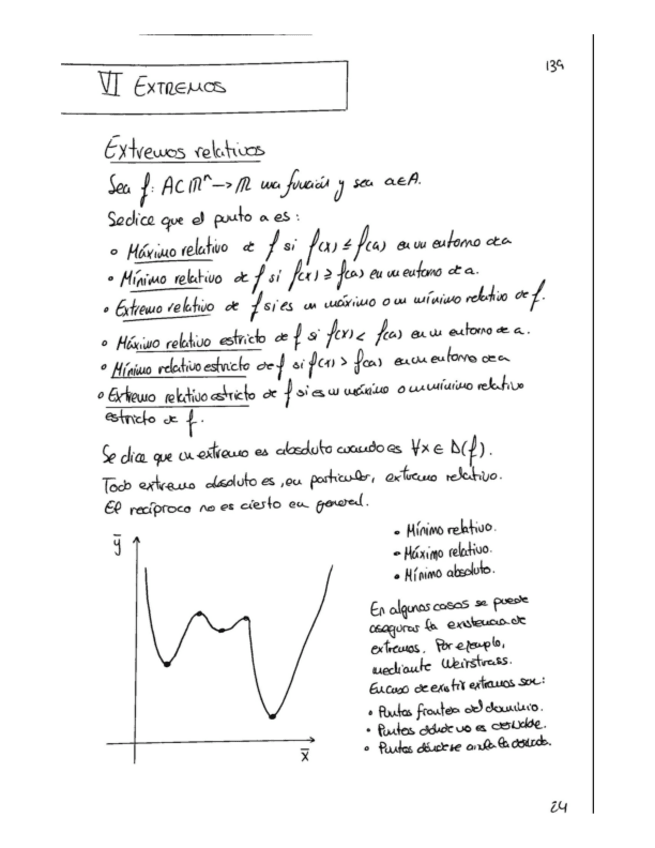 139
VI EXTREMOS
Extremos relativos
Sea f: A⊂ℝⁿ→ℝ una función y sea a∈A.
Se dice que el punto a es:
• Máximo relativo de f si f(x) ≤ f(a) en un entorno de a
• Mínimo relativo de f si f(x) ≥ f(a) en un entorno de a.
• Extremo relativo de f si es un máximo o un mínimo relativo de f.
• Máximo relativo estricto de f si f(x) < f(a) en un entorno de a.
• Mínimo relativo estricto de f si f(x) > f(a) en un entorno de a
• Extremo relativo estricto de f si es un máximo o un mínimo relativo
estricto de f.
Se dice que un extremo es absoluto cuando es ∀x ∈ D(f).
Todo extremo absoluto es, en particular, extremo relativo.
El recíproco no es cierto en general.
y̅
x̅
• Mínimo relativo.
• Máximo relativo.
• Mínimo absoluto.
En algunos casos se puede
asegurar la existencia de
extremos. Por ejemplo,
mediante Weirstrass.
En caso de existir extremos son:
• Puntos frontera del dominio.
• Puntos dónde no es derivable.
• Puntos dónde se anula la derivada.
24